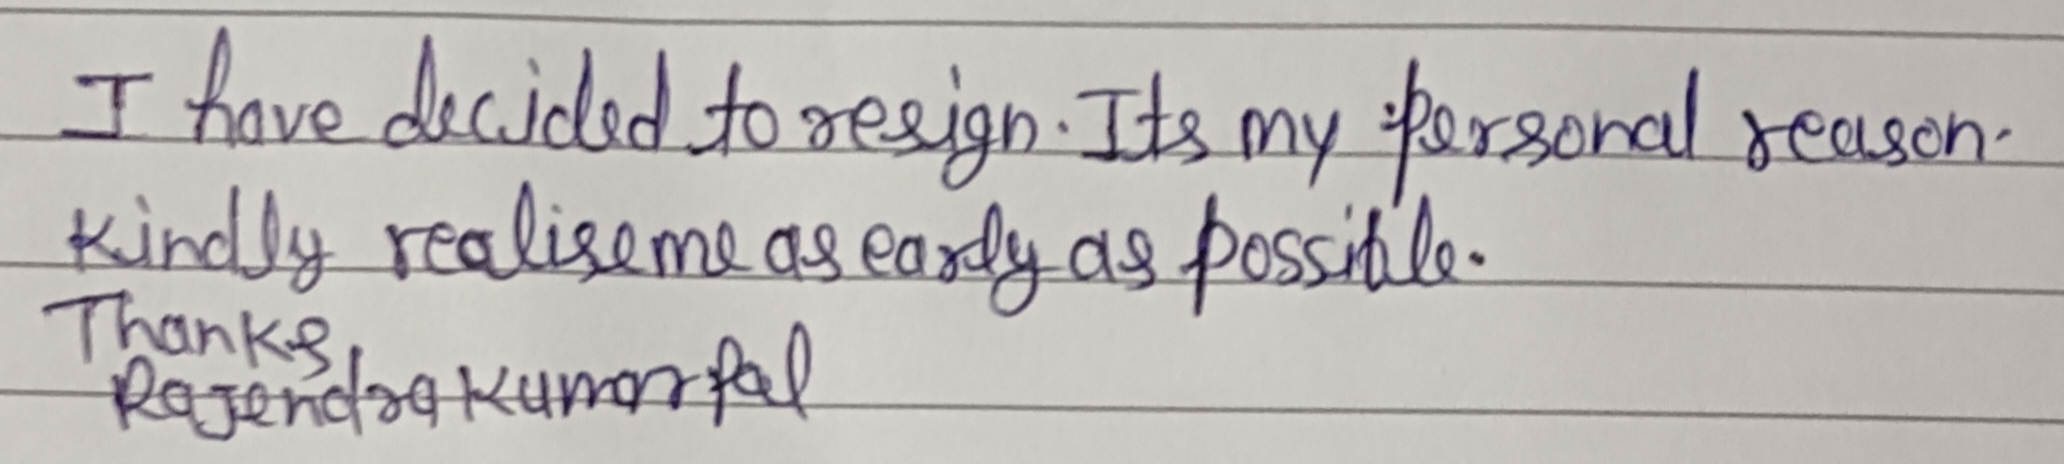 I have decided to resign. Its my personal reason.
Kindly realise me as early as possible.
Thanks,
Rajendra Kumar Pal